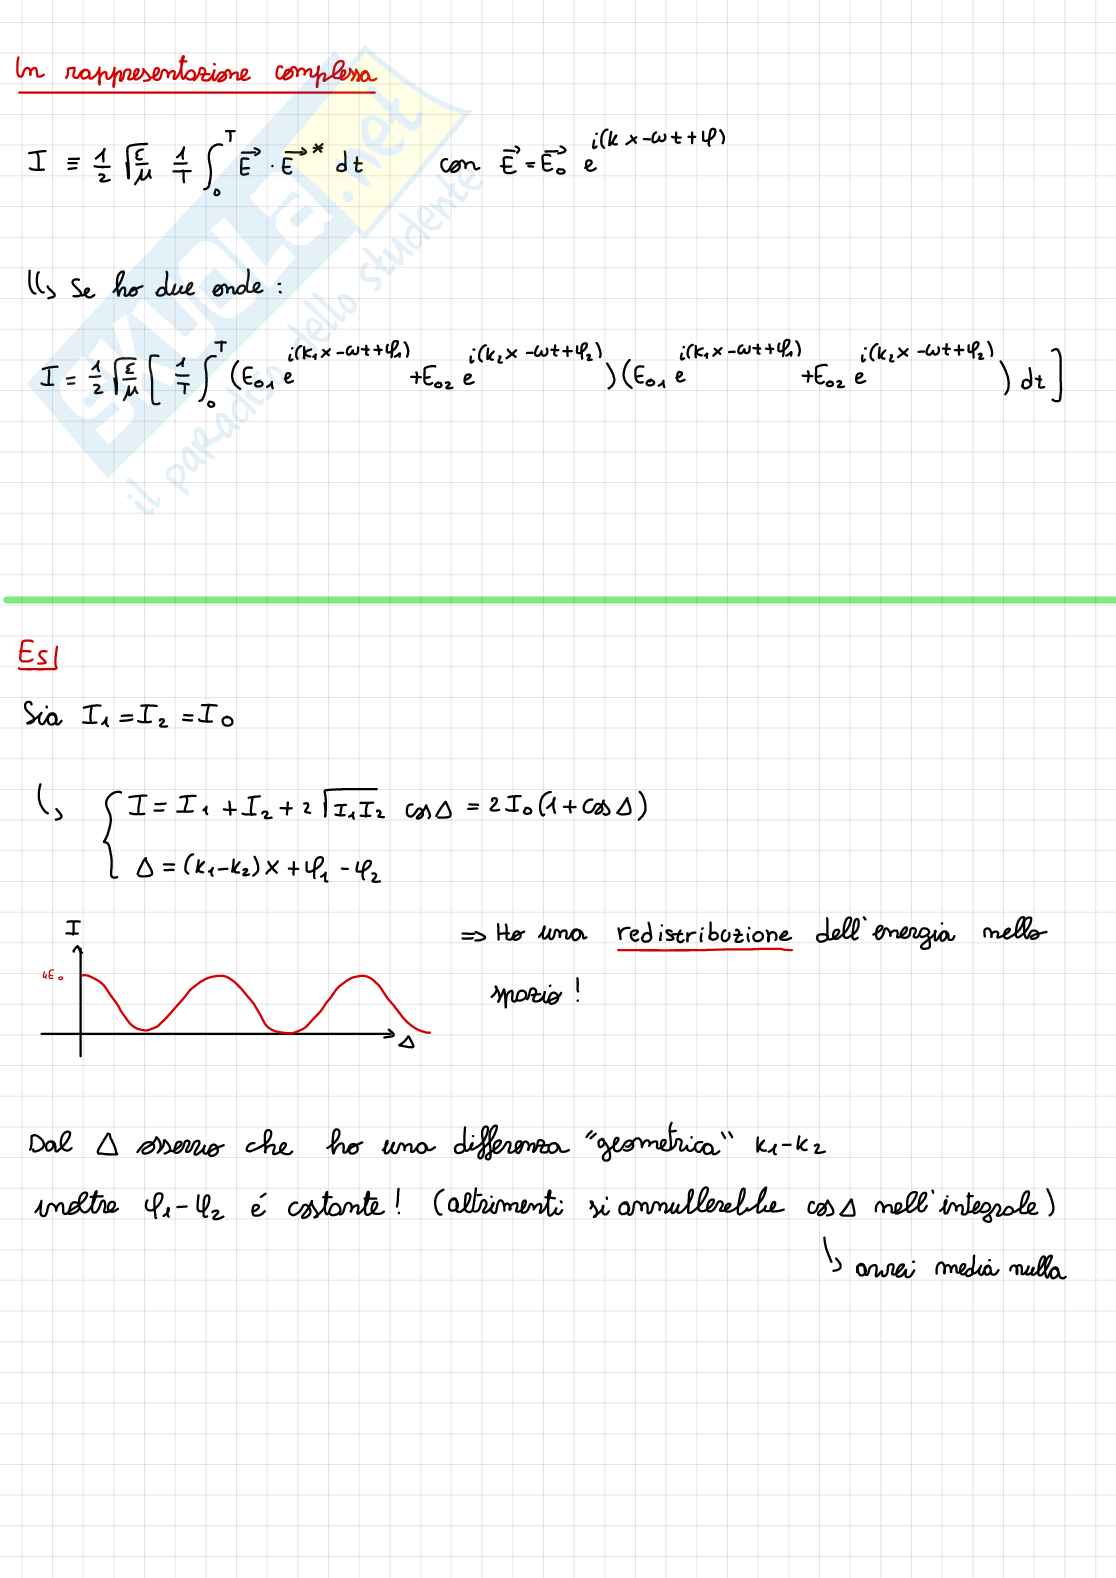 In rappresentazione complessa
I ≡ 1/2 √(ε/μ) 1/T ∫₀ᵀ E⃗ · E⃗* dt con E⃗ = E⃗₀ e^{i(kx-ωt+φ)}
↳ Se ho due onde :
I = 1/2 √(ε/μ) [ 1/T ∫₀ᵀ (E₀₁ e^{i(k₁x-ωt+φ₁)} + E₀₂ e^{i(k₂x-ωt+φ₂)})(E₀₁ e^{i(k₁x-ωt+φ₁)} + E₀₂ e^{i(k₂x-ωt+φ₂)}) dt ]
Es|
Sia I₁ = I₂ = I₀
↳ { I = I₁ + I₂ + 2 √(I₁I₂) cosΔ = 2I₀(1+cosΔ)
Δ = (k₁-k₂)x + φ₁ - φ₂
I
4E₀
Δ
⇒ Ho una redistribuzione dell'energia nello
spazio !
Dal Δ osservo che ho una differenza "geometrica" k₁-k₂
inoltre φ₁-φ₂ é costante ! (altrimenti si annullerebbe cosΔ nell'integrale)
↳ avrei media nulla
SKUOLA.net
il paradiso dello studente